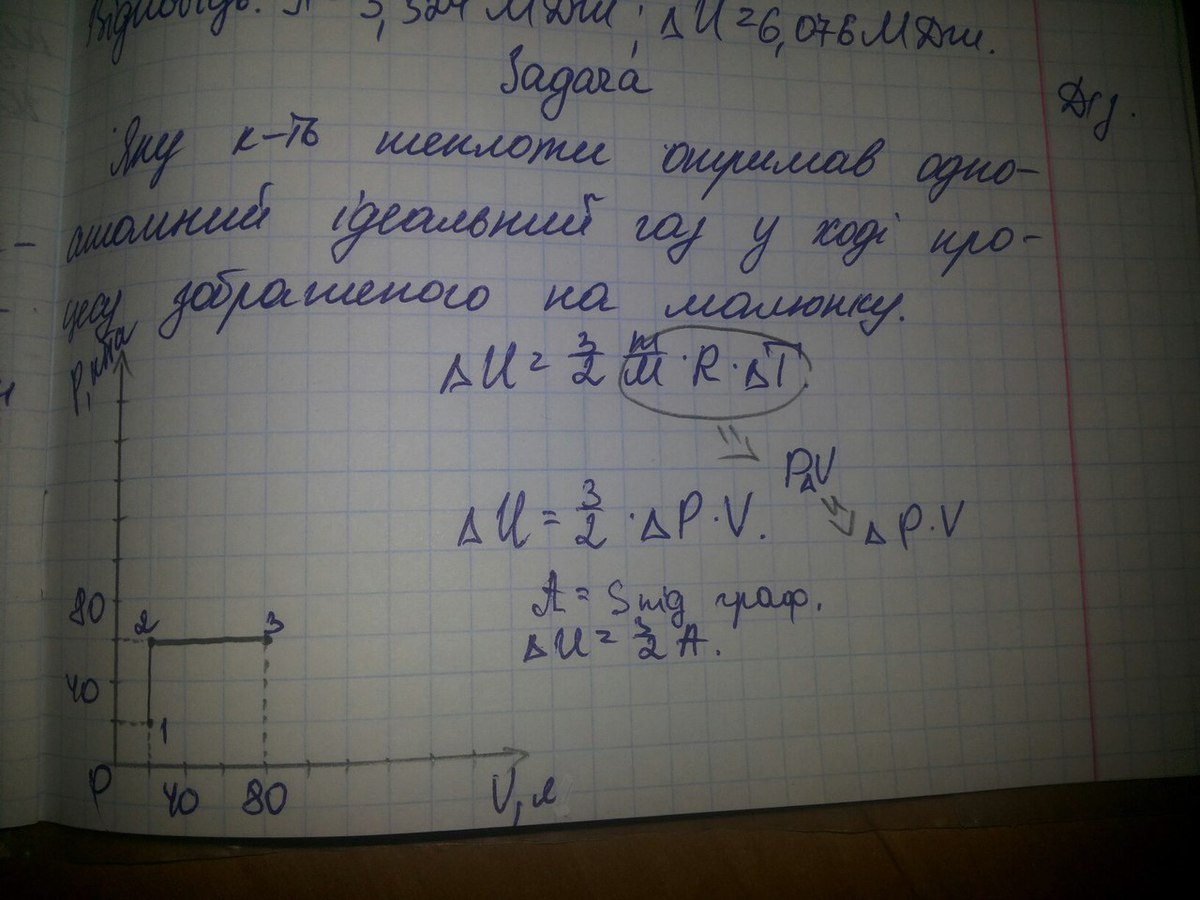 Відповідь: A = 3,324 МДж; ΔU=6,076МДж.
Задача
Д/з.
Яку к-ть теплоти отримав одно-
атомний ідеальний газ у ході про-
цесу зображеного на малюнку.
P, кПа
ΔU = 3/2 m/M · R · ΔT
PΔV
ΔU = 3/2 · ΔP · V.
ΔP · V
80
A = Sпід граф.
2 3
ΔU = 3/2 A.
40
1
0 40 80 V, л